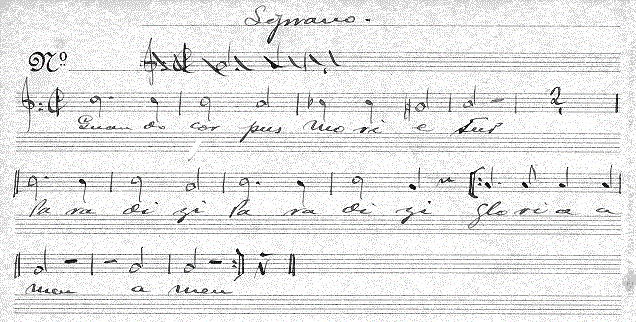 Soprano.
Nº
2
Quan do cor pus mo ri e tur
Pa ra di zi Pa ra di zi glo ri a a
men a men